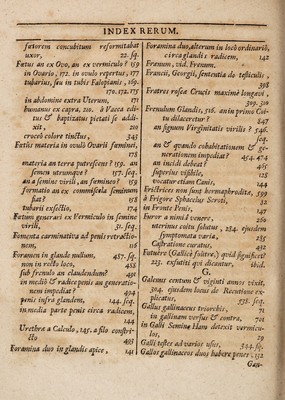 INDEX RERUM.
fœtorem concubitum reformitabat
uxor, 22. seq.
Fœtus an ex Ovo, an ex vermiculo? 159
in Ovario, 172. in vulvo repertus, 177
tubarius, seu in tubis Falopianis, 169.
170. 172. 175
in abdomine extra Uterum, 171
humanus ex capra, 210. à Vacca editus & baptizatus pietati se addixit, 210
cruce colore tinctus, 345
Fœtûs materia in vulvo Ovarii fœminei,
178
materia an terra putrescens? 159. an
semen utrumque? 157. seq.
an à semine virili, an fœmineo? 159
formatio an ex commiscela seminum
fiat? 158
tubarii exsectio, 174
Fœtum generari ex Vermiculo in semine
virili, 31. seq.
Fomenta carminativa ad penis retractionem, 116
Foramen in glande nullum, 487. seq.
non in recto loco, 488
sub frænulo an claudendum? 491
in medio & radice penis an generationem impediat? 494
penis infra glandem, 144. seq.
in media parte penis circa radicem,
144
Urethræ a Calculo, 145. à filo constricto 493
Foramina duo in glandis apice, 141
Foramina duo, alterum in loco ordinario,
circa glandis radicem, 142
Frænum, vid. Frenum.
Francii, Georgii, sententia de testiculis,
398
Fratres rosea Crucis maximè longævi,
309. 310
Frenulum Glandis, 518. an in primo Coitu dilaceretur? 847
an signum Virginitatis virilis? 546.
seq.
an & quando cohabitationem & generationem impediat? 454. 474
an incidi debeat? 485
superius visibile, 128
vocatur etiam Canis, 144
Frictrices non sunt hermaphroditæ, 399
à Frigore Sphacelus Scroti, 32
in Fronte Penis, 147
Furor a nimiâ venere, 261
uterinus coitu solutus, 254. ejusdem
symptomata varia, 285
Castratione curatus, 432
Futuëre (Gallicè foûtre,) quid significet?
223. exfututi qui dicantur, ibid.
G.
Galenus centum & viginti annos vixit,
304. ejusdem locus de Recutitione explicatus, 558. seq.
Gallus gallinaceus triorchis, 71
in gallinam versus & contra, 701
in Galli Semine Ham detexit vermiculos, 29
Galli testes ad varios usus, 344. seq.
Gallos gallinaceos duos habere penes, 132
Gan-